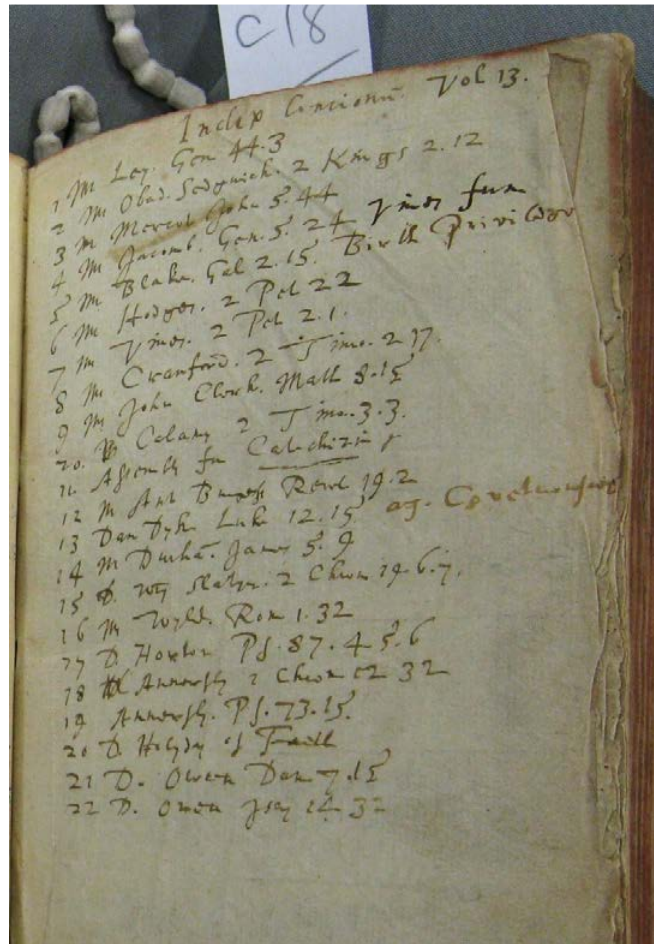 C18
Index Concionũ. Vol 13.
1 Mr Ley. Gen 44.3
2 Mr Obad. Sedgwick. 2 Kings 2.12
3 Mr Mercot John 5.44
4 Mr Jacomb. Gen. 5. 24 Vines fun
5 Mr Blake. Gal 2.15. Birth Priviledge
6 Mr Hodges. 2 Pet 2 2
7 Mr Vines. 2 Pet 2.1.
8 Mr Cranford. 2 Timo. 2 17.
9 Mr John Clerk. Math 8.15
Calamy 2 Timo. 3.3.
11 Assembly Catechizing
12 Mr Ant Burgess Revel 19.2
13 Dan Dyke Luke 12.15 ag. Covetousness
14 Mr Durhã. James 5.9
15 D. Slatyr. 2 Chron 19.6.7.
16 Mr Wyld. Rom 1.32
17 D. Horton Ps. 87. 4 5.6
18 Annersly 2 Chron 12 32
19 Annersly. Ps. 73.15.
20 D Holyday of Faith
21 D. Owen Dan 7.15
22 D. Owen 14 32